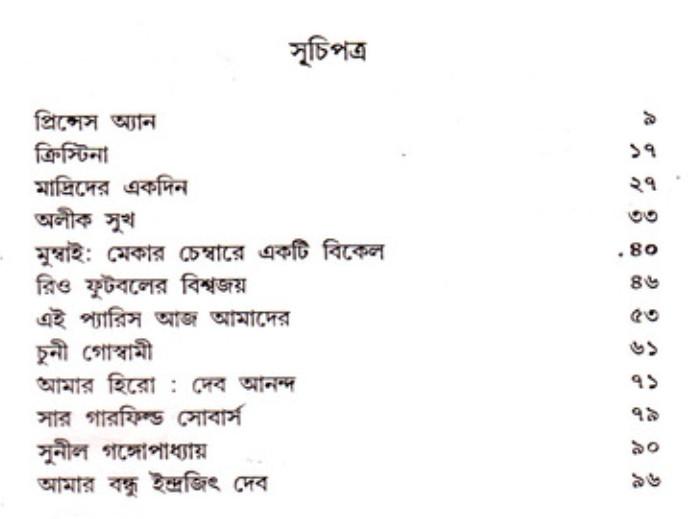 সূচিপত্র
প্রিন্সেস অ্যান ৯
ক্রিস্টিনা ১৭
মাদ্রিদের একদিন ২৭
অলীক সুখ ৩৩
মুম্বাই: মেকার চেম্বারে একটি বিকেল ৪০
রিও ফুটবলের বিশ্বজয় ৪৬
এই প্যারিস আজ আমাদের ৫৩
চুনী গোস্বামী ৬১
আমার হিরো : দেব আনন্দ ৭১
সার গারফিল্ড সোবার্স ৭৯
সুনীল গঙ্গোপাধ্যায় ৯০
আমার বন্ধু ইন্দ্রজিৎ দেব ৯৬